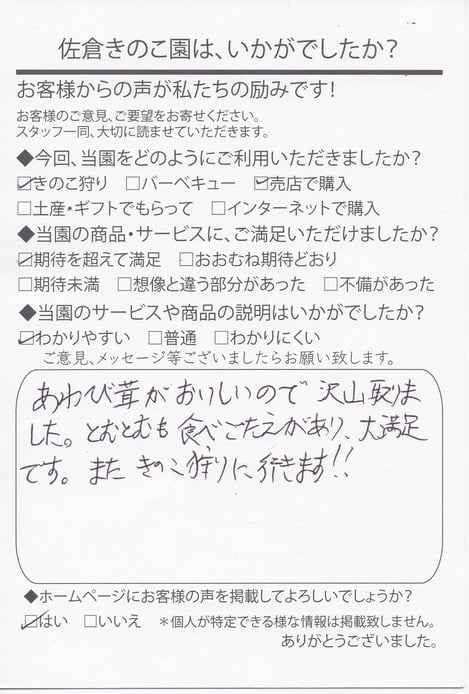 佐倉きのこ園は、いかがでしたか？
お客様からの声が私たちの励みです！
お客様のご意見、ご要望をお寄せください。
スタッフ一同、大切に読ませていただきます。
◆今回、当園をどのようにご利用いただきましたか？
☑きのこ狩り □バーベキュー ☑売店で購入
□土産・ギフトでもらって □インターネットで購入
◆当園の商品・サービスに、ご満足いただけましたか？
☑期待を超えて満足 □おおむね期待どおり
□期待未満 □想像と違う部分があった □不備があった
◆当園のサービスや商品の説明はいかがでしたか？
☑わかりやすい □普通 □わかりにくい
ご意見、メッセージ等ございましたらお願い致します。
あわび茸がおいしいので 沢山取りま
した。とむとむも 食べごたえがあり、大満足
です。また きのこ狩りに行きます!!
◆ホームページにお客様の声を掲載してよろしいでしょうか？
☑はい □いいえ ＊個人が特定できる様な情報は掲載致しません。
ありがとうございました。